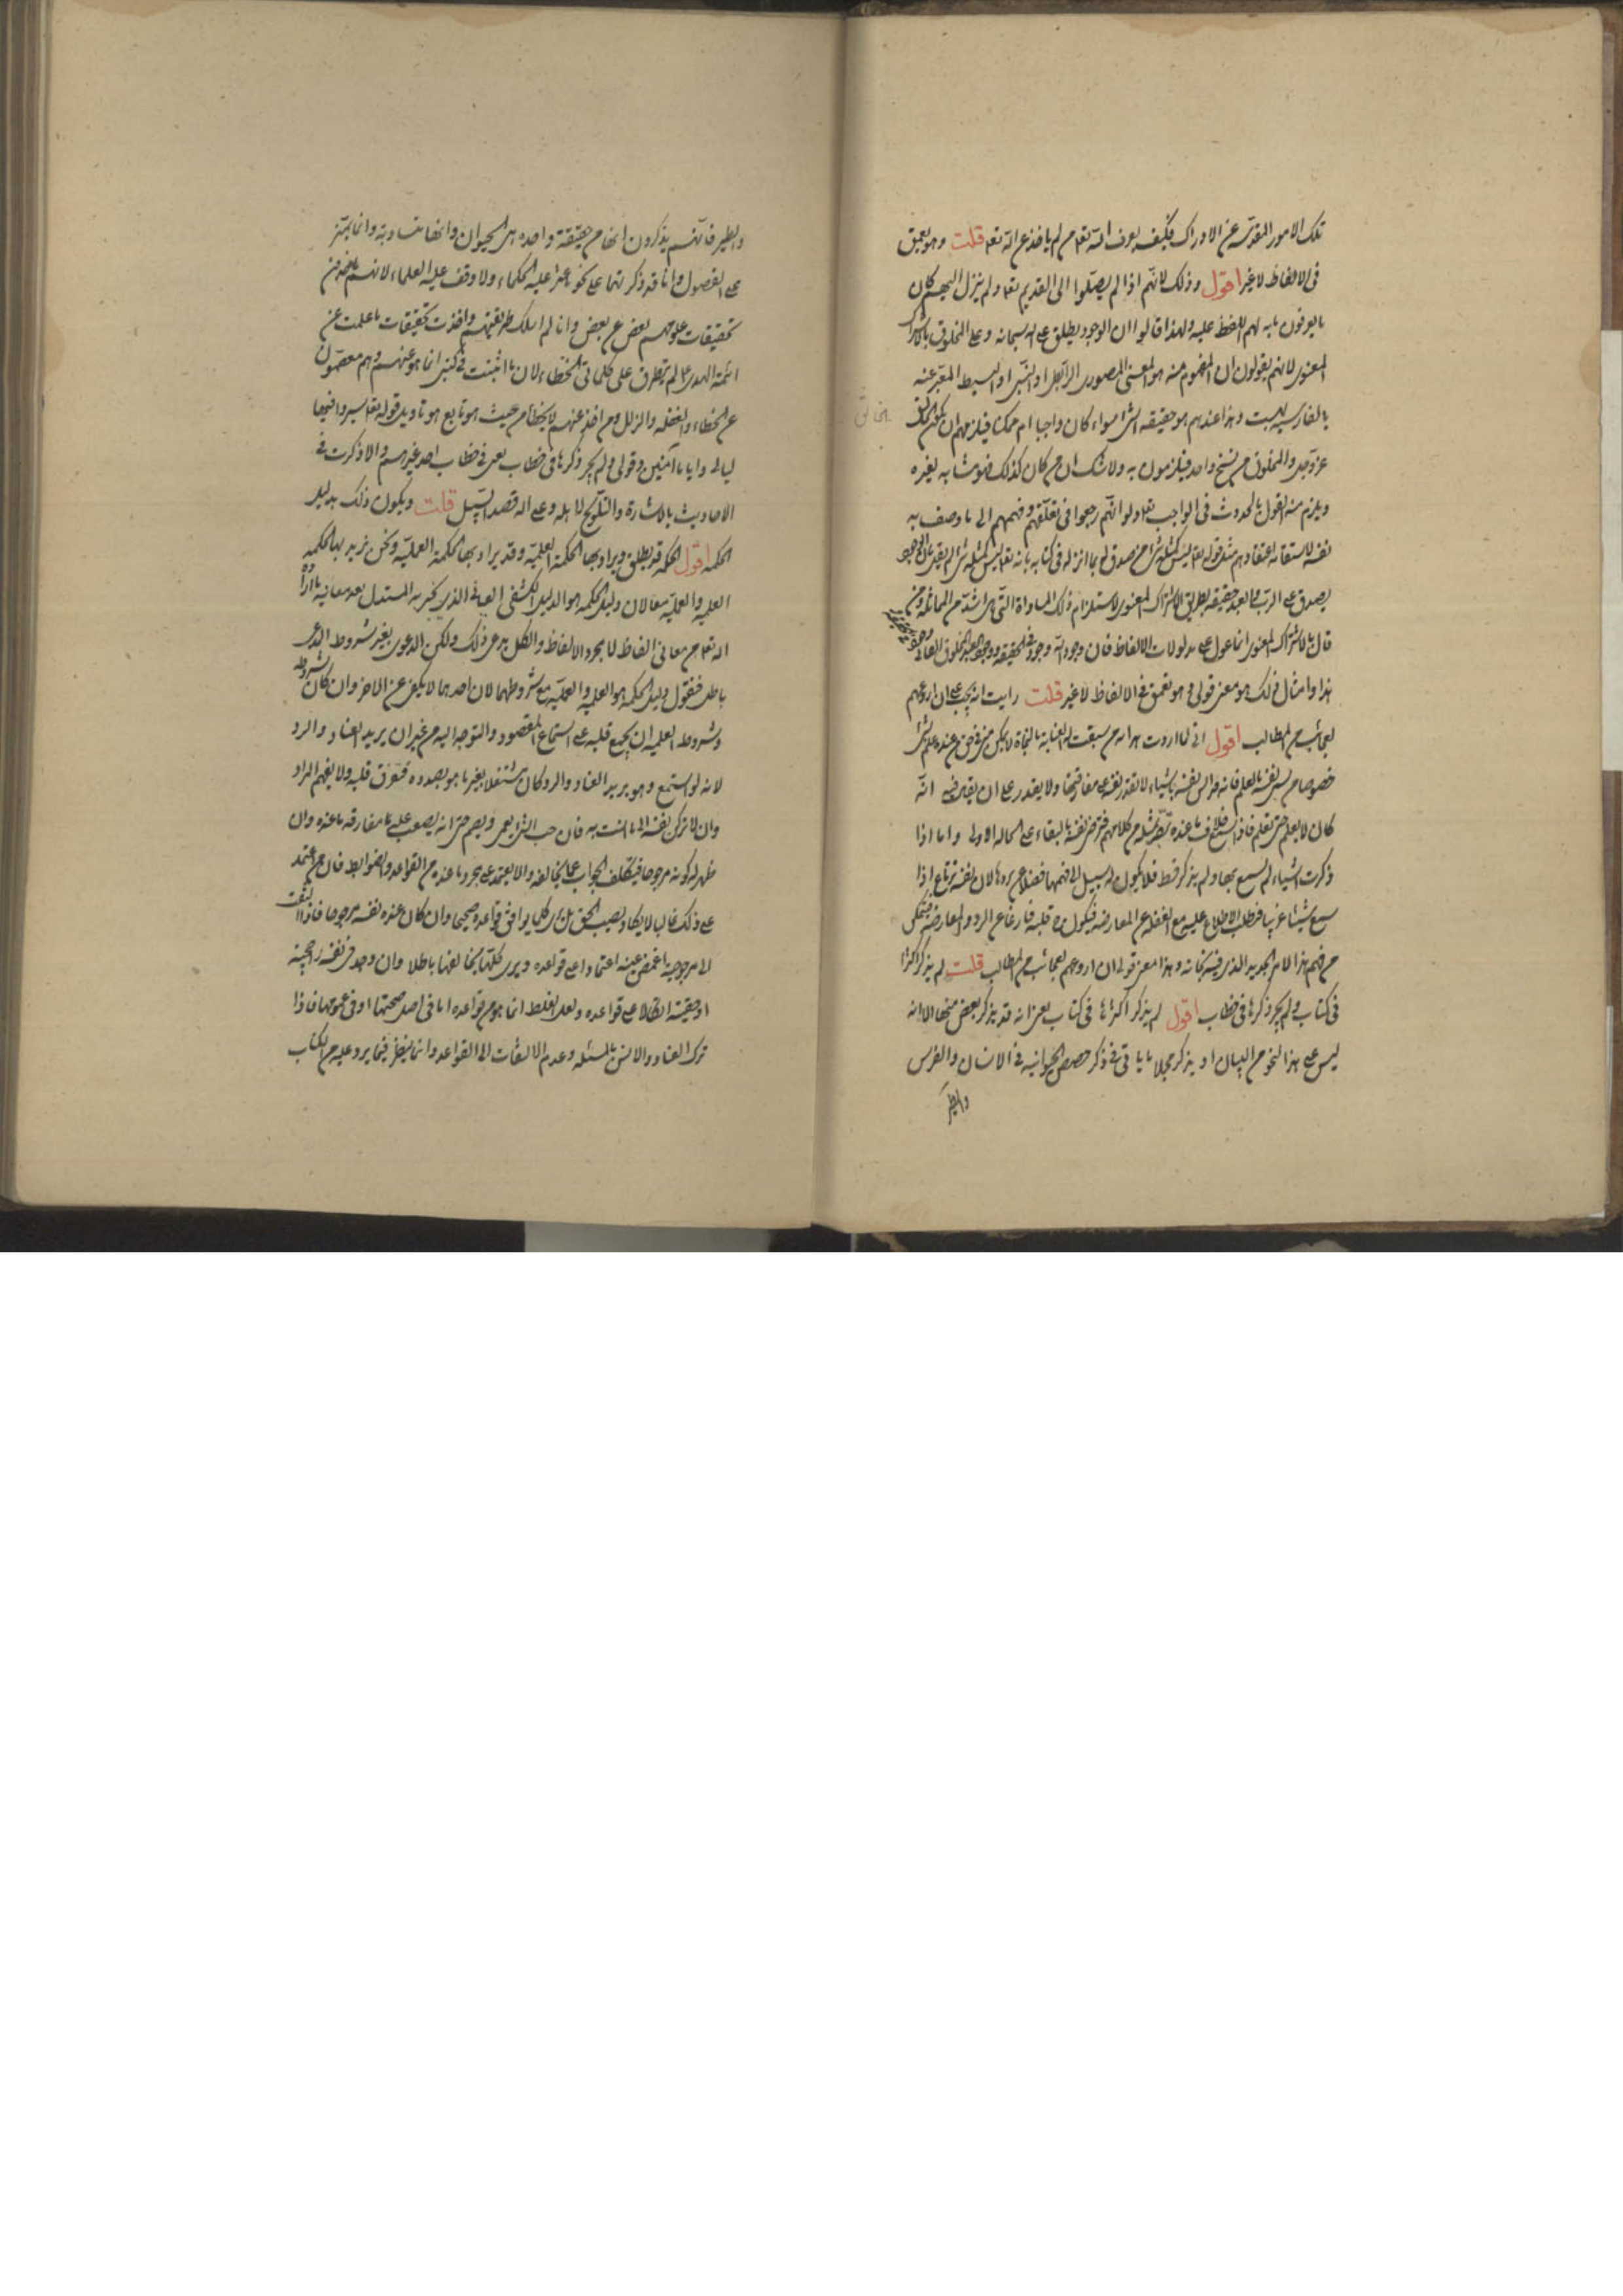 تلك الامور المقدسة عن الادراك فكيف يعرف الله تعالى من لم ياخذ عن الله تعالى قلت وهو يتعمق
فى الالفاظ لا غير اقول وذلك لانهم اذا لم يصلوا الى القديم تعالى ولم ينزل اليهم كان
ما يعرفون ما به لهم اللفظ عليه ولهذا قالوا ان الوجود يطلق على الله سبحانه وعلى المخلوق بالاشتراك
المعنوى لانهم يقولون ان المفهوم منه هو المعنى المصدرى الرابطى او النسبى او البسيط المعبر عنه
بالفارسية بهست وهذا عندهم هو حقيقة الشىء سواء كان واجبا ام ممكنا فيلزمهم ان يكون الخالق
عز وجل والمخلوق من سنخ واحد فيلزمون به ولا شك ان من كان كذلك فهو مشابه لغيره
ويلزم منه القول بالحدوث فى الواجب تعالى ولو انهم رجعوا فى تعلقهم وفهمهم الى ما وصف به
نفسه لاستقام اعتقادهم مثل قوله تعالى ليس كمثله شىء فمن صدق لما انزله فى كتابه بانه تعالى ليس كمثله شىء لم يقل بان الوجود
يصدق على الرب والعبد حقيقة بطريق الاشتراك المعنوى لاستلزام ذلك المساواة التى هى اشد من المماثلة ومن
قال بالاشتراك المعنوى انما عول على مدلولات الالفاظ فان وجود الله وجود فى الحقيقة ووجود العبد المخلوق
هذا وامثال ذلك هو معنى قولى وهو يتعمق فى الالفاظ لا غير قلت رايت انه يجب على ان اروعهم
بعجائب من المطالب اقول انى لما اردت هداية من سبقت له العناية بالنجاة لا يمكن من عنده علم بشىء
خصوصا من انس نفسه بالعلم فانه قد انس نفسه باشياء لا تقدر نفسه على مفارقتها ولا يقدر على ان يقابر نفسه انه
كان لا يعلم حتى تعلم فاذا سمع خلاف ما عنده مثله من كلامهم نفسه بالبقاء على الحالة الاولى واما اذا
ذكرت اشياء لم يسمع بها ولم يذكر قط فلا يكون له سبيل الى فهمها فضلا عن ردها لان نفسه ترتاع اذا
سمع شيئا غريبا فطلب الاطلاع عليه مع الغفلة عن المعارضة فيكون قلبه فارغا عن الرد والمعارضة فيتمكن
من فهم هذا الامر الجديد الذى وهذا معنى قولى ان اروعهم بعجائب من المطالب قلت لم يذكر اكثرها
فى كتاب ولم يجر ذكرها فى خطاب اقول لم يذكر اكثرها فى كتاب يعنى انه قد يذكر بعض منها الا انه
ليس على هذا النحو من البيان او يذكر مجملا ما ياتى فى ذكر حصص الحيوانية فى الانسان والفرس
والطير
والطير فانهم يذكرون انها من حقيقة واحدة هى الحيوان وانها متساوية وانما تتميز
بالفصول وانا قد ذكرتها على نحو ما عثر عليه الحكماء ولا وقف عليه العلماء لانهم ياخذون
تحقيقات علومهم بعض عن بعض وانا لم اسلك طريقتهم واخذت تحقيقات ما علمت عن
ائمة الهدى ع لم يتطرق على كلماتى الخطاء لان ما اثبت فى كتبى انما هو عنهم وهم معصومون
عن الخطاء والغفلة والزلل ومن اخذ عنهم لا يخطأ من حيث هو تابع هو تاويل قوله تعالى سيروا فيها
ليالى واياما آمنين وقولى ولم يجر ذكرها فى خطاب يعنى فى خطاب احد غيرهم والا ذكرت فى
الاحاديث بالاشارة والتلويح لاهله وعلى الله قصد السبيل قلت ويكون ذلك بدليل
الحكمة اقول الحكمة قد يطلق ويراد بها الحكمة العلمية وقد يراد بها الحكمة العملية ونحن نريد بها الحكمة
العلمية والعملية معا لان دليل الحكمة هو الدليل الكشفى العيانى الذى يخبر به المستدل بعد معاينة ما اراد
الله تعالى من معانى الفاظ لا مجرد الالفاظ والكل يدعى ذلك ولكن الدعوى بغير شروط المدعى
باطل فنقول دليل الحكمة هو العلمية والعملية مع شروطهما لان احدهما لا يكفى عن الاخر وان كان شروطه
وشروط العلمية ان يجمع قلبه على استماع المقصود والتوجه اليه من غير ان يريد العناد والرد
لانه لو استمع وهو يريد العناد والرد كان مشتغلا بغير ما هو بصدده فتفرق قلبه ولا يفهم المراد
وان لا تركن نفسه الى ما انست به فان حب الشىء يعمى ويصم حتى انه يصعب عليه مفارقة ما عنده وان
ظهر له كونه مرجوحا فيتكلف الجواب عما يخالفه والا يعتمد على مجرد ما عنده من القواعد والضوابط فان من اعتمد
على ذلك غالبا لا يكاد يصيب الحق بل يرى كلما يوافق قواعده صحيحا وان كان عنده نفسه مرجوحا فاذا التفت
الى مرجوحيته اغمض عينه اعتمادا على قواعده ويرى كلما يخالفها باطلا وان وجد فى نفسه راجحيته
او حقيته اتكالا على قواعده ولعل الغلط انما هو من قواعده اما فى اصل صحتها او فى عمومها فاذا
ترك العناد والانس بالمسئلة وعدم الالتفات الى القواعد وانما ينظر فيما يرد عليه من الكتاب